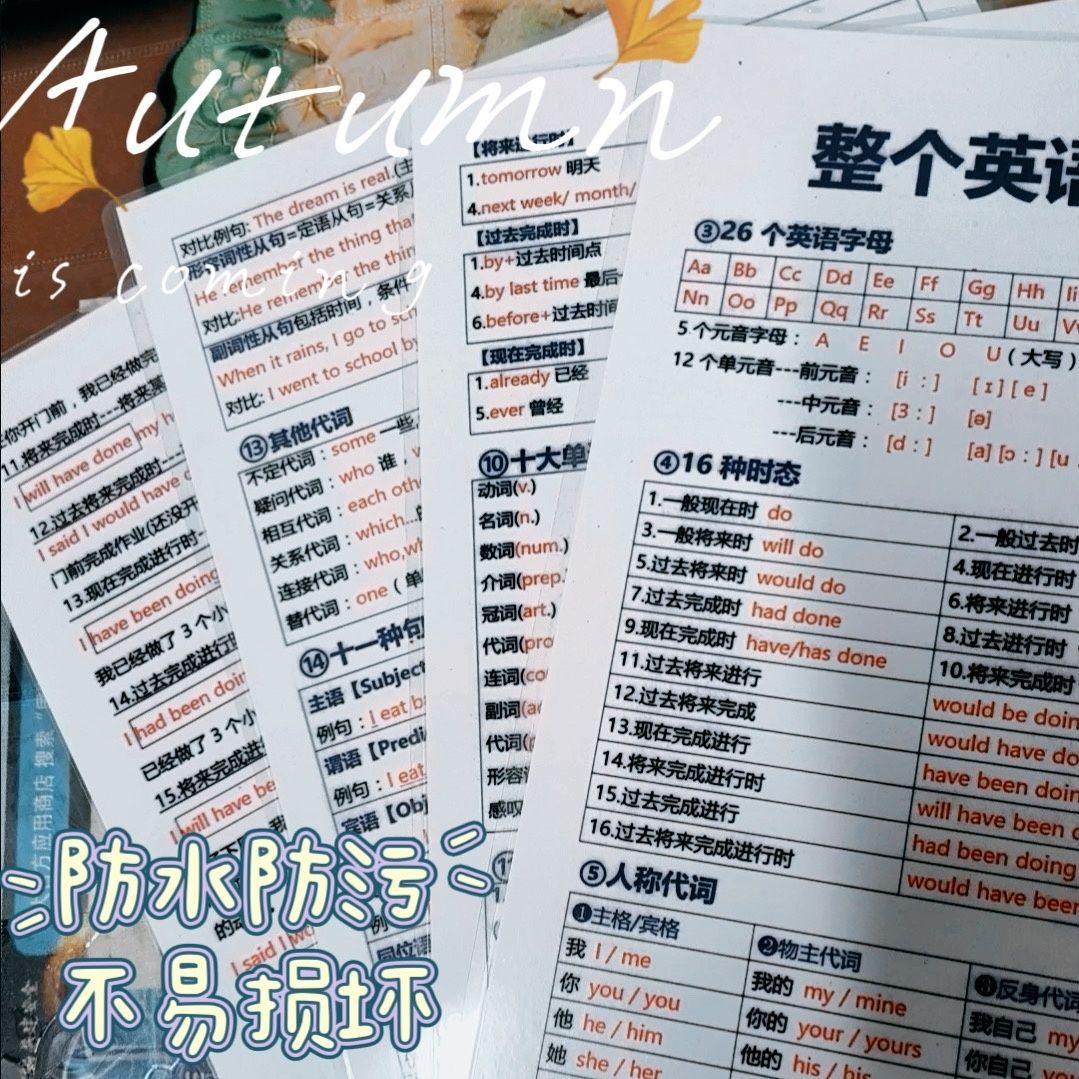 Autumn
is coming
防水防污
不易损坏
整个英语
③26 个英语字母
Aa Bb Cc Dd Ee Ff Gg Hh Ii
Nn Oo Pp Qq Rr Ss Tt Uu
5 个元音字母： A E I O U（大写）
12 个单元音---前元音： [i ：] [ɪ] [e]
---中元音： [3：] [ə]
---后元音： [d：] [a] [ɔ：] [u
④16 种时态
1.一般现在时 do
2.一般过去时
3.一般将来时 will do
4.现在进行时
5.过去将来时 would do
6.将来进行时
7.过去完成时 had done
8.过去进行时
9.现在完成时 have/has done
10.将来完成时
11.过去将来进行 would be doin
12.过去将来完成 would have do
13.现在完成进行 have been doin
14.将来完成进行时 will have been
15.过去完成进行 had been doing
16.过去将来完成时 would have been
⑤人称代词
❶主格/宾格
❷物主代词
❸反身代词
我 I / me
我的 my / mine
我自己 my
你 you / you
你的 your / yours
你自己
他 he / him
他的 his / his
她 she / her
【将来进行时】
1.tomorrow 明天
4.next week/ month/
【过去完成时】
1.by+过去时间点
4.by last time 最后
6.before+过去时间
【现在完成时】
1.already 已经
5.ever 曾经
⑩十大单
动词(v.)
名词(n.)
数词(num.)
介词(prep.
冠词(art.)
代词(pro
连词(co
副词(ad
代词(p
形容
感叹
对比例句: The dream is real.(主
形容词性从句=定语从句=关系
He remember the thing that
对比:He rememb the thing
副词性从句包括时间，条件
When it rains, I go to sch
对比: I went to school by
⑬其他代词
不定代词：some 一些
疑问代词：who 谁，
相互代词：each othe
关系代词：which...
连接代词：who,wh
替代词：one（单
⑭十一种句
主语【Subject
例句：I eat b
谓语【Predi
例句：I eat
宾语【Obj
同位语
在你开门前，我已经做完
11.将来完成时---将来某
I will have done my h
12.过去将来完成时---
I said I would have
门前完成作业(还没开
13.现在完成进行时--
I have been doing
我已经做了 3 个小
14.过去完成进行时
I had been doin
已经做了 3 个小
15.将来完成进
I will have be
I said I wo
应用商店 搜索